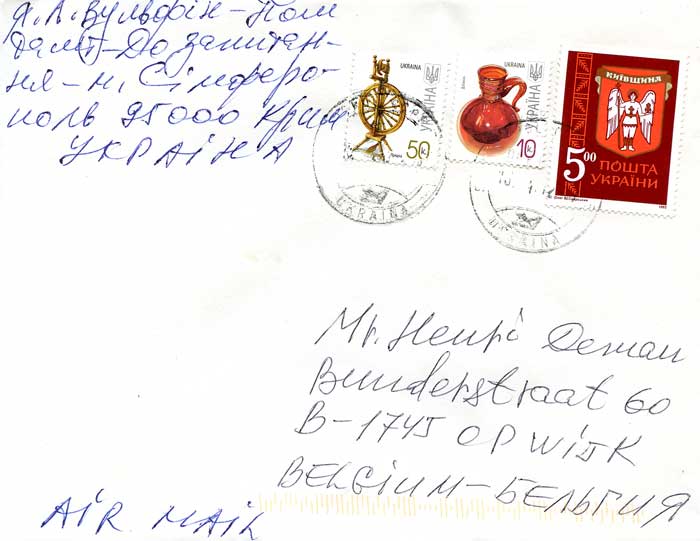 Я. Л. Вульфін - Пош
тамт - До запитан-
ня - м. Сімферо-
поль 95000 Крим
УКРАЇНА
UKRAINA
УКРАЇНА
50к
UKRAINA
УКРАЇНА
10к
КИЇВЩИНА
5.00
ПОШТА
УКРАЇНИ
UKRAINA
UKRAINA
Mr. Henri Deman
Bunderstraat 60
B-1745 OPWIJK
BELGIUM - БЕЛЬГИЯ
AIR MAIL